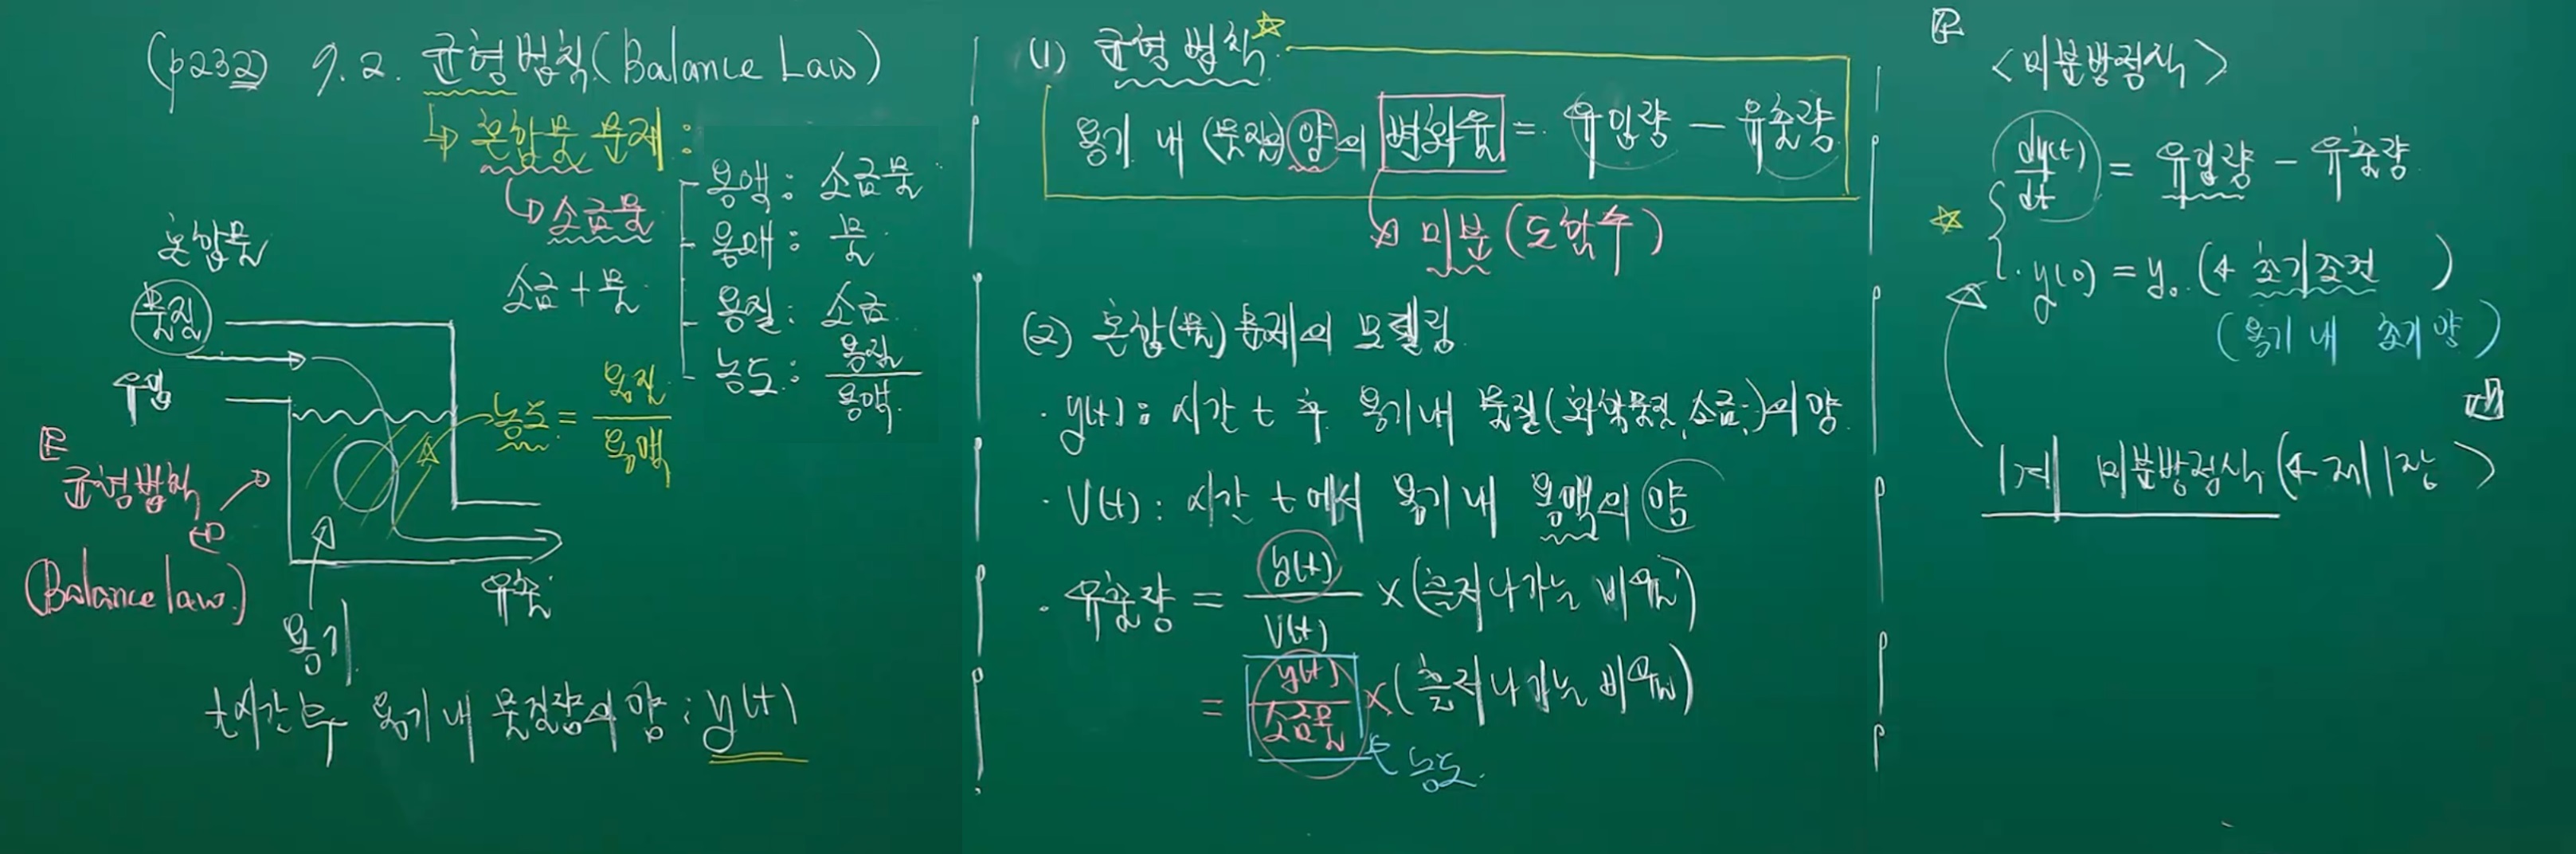 (p232) 9.2. 균형법칙(Balance Law)
↳ 혼합물 문제 :
↳ 소금물
소금 + 물
용액 : 소금물
용매 : 물
용질 : 소금
농도 : 용질/용액
혼합물
물질
유입
농도 = 용질/용액
균형법칙
(Balance law.)
용기
유출
t시간 후 용기 내 물질량의 양 : y(t)
(1) 균형 법칙 ☆
용기 내 (물질의) 양의 변화율 = 유입량 − 유출량
↳ 미분 (도함수)
(2) 혼합(물) 문제의 모델링
· y(t) : 시간 t 후 용기 내 물질(화학물질, 소금;)의 양
· V(t) : 시간 t 에서 용기 내 용액의 양
· 유출량 = y(t)/V(t) × (흘러나가는 비율)
= y(t)/소금물 × (흘러나가는 비율)
농도.
<미분방정식>
dy(t)/dt = 유입량 − 유출량
☆
· y(0) = y₀ (← 초기조건 )
(용기 내 초기 양)
1계 미분방정식 (← 제1장 )